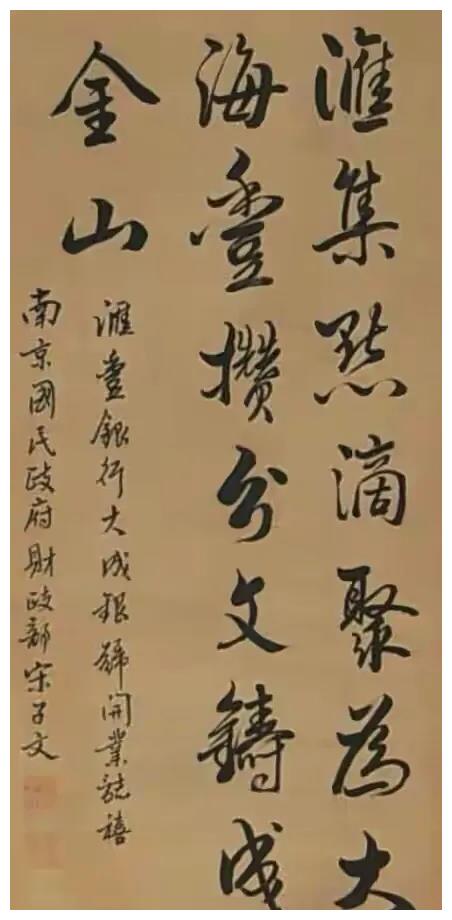 滙集點滴聚為大
海豊攢分文鑄成
金山
滙豊銀行大成銀號開業誌禧
南京國民政府財政部宋子文